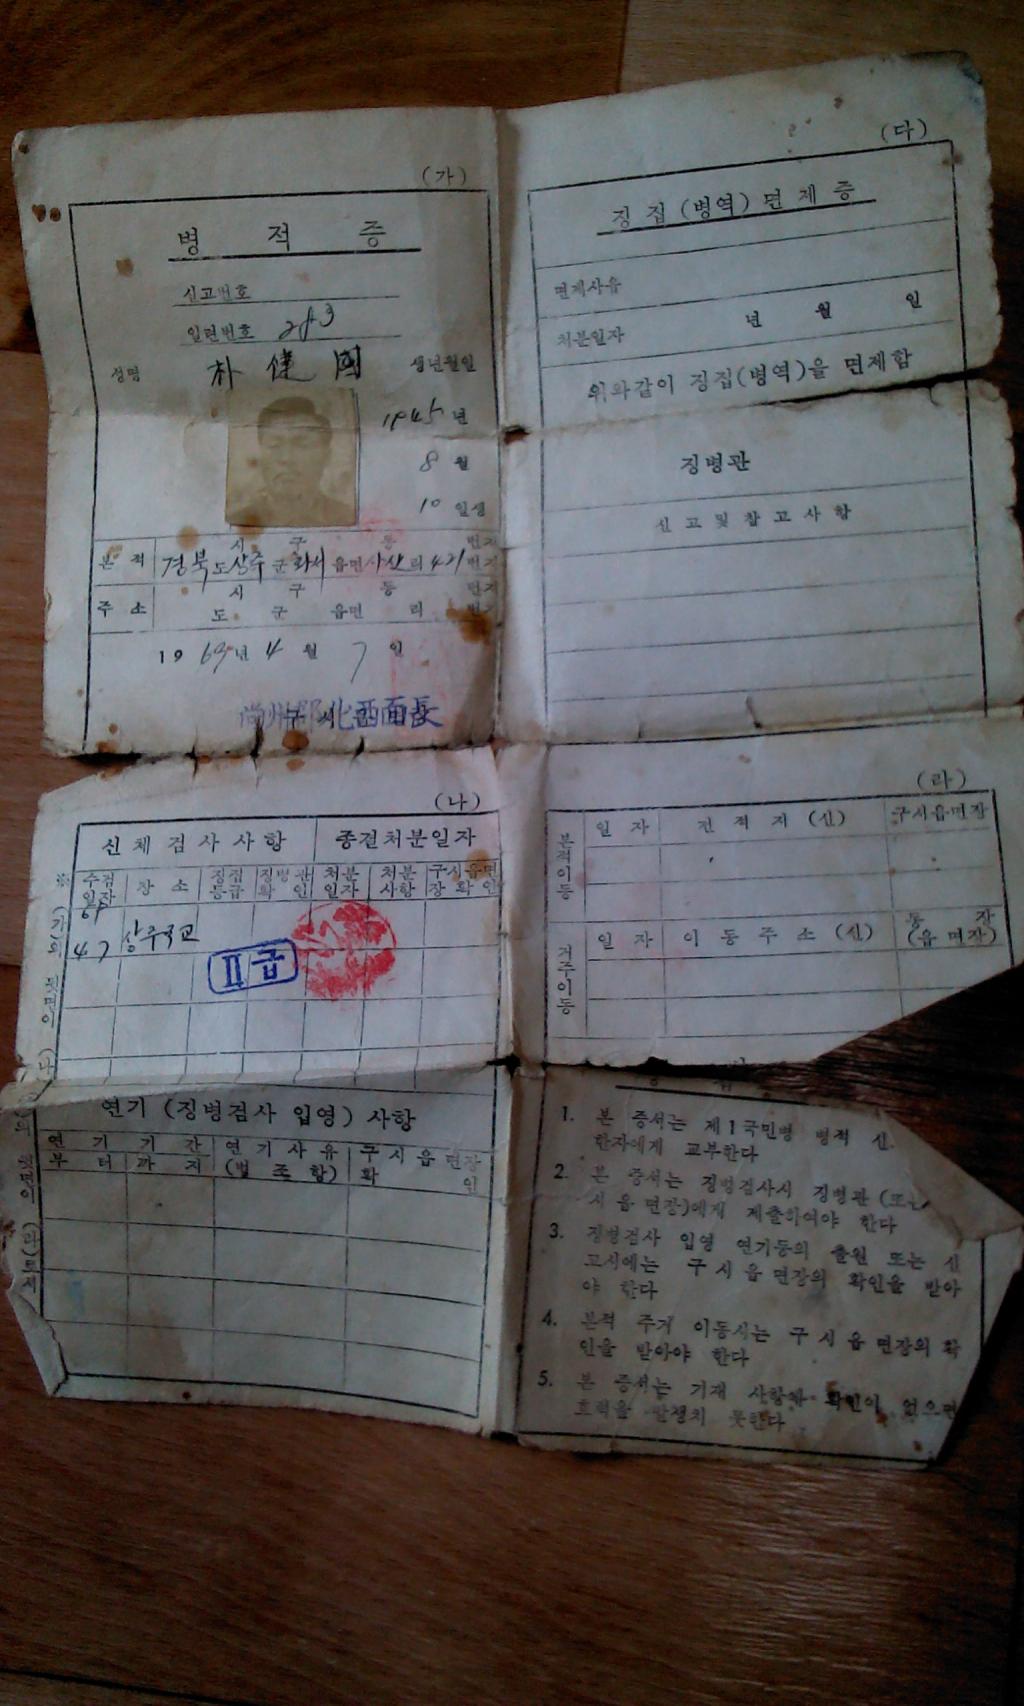 (가)
병 적 증
신고번호
일련번호 283
성명 朴 健 國 생년월일
1945 년
8 월
10 일생
본 적 시 구 동 번지
경북 도 상주 군 화서 읍면 사산 리 421 번지
주 소 시 구 동 번지
도 군 읍면 리 번지
1969년 4 월 7 일
尙州郡化西面長
(다)
징 집 (병역) 면 제 증
면제사유
처분일자 년 월 일
위와같이 징집(병역)을 면제함
징병관
신 고 및 참 고 사 항
(나)
신 체 검 사 사 항 종결처분일자
수검일자 장 소 징집등급 징병관확인 처분일자 처분사항 구시읍면장확인
69
4 7 상주국교 II급
※ (가)의 뒷면이 (나)
(라)
본적이동 일 자 전 적 지 (신) 구시읍면장
거주이동 일 자 이 동 주 소 (신) 동 장 (읍 면장)
연기 (징병검사 입영) 사항
연 기 기 간 연 기 사 유 구 시 읍 면장
부 터 까 지 (법 조 항) 확 인
의 뒷면이 (라)
1. 본 증서는 제1국민병 병적 신
한자에게 교부한다
2. 본 증서는 징병검사시 징병관 (또는
시 읍 면장)에게 제출하여야 한다
3. 징병검사 입영 연기등의 출원 또는 신
고시에는 구 시 읍 면장의 확인을 받아
야 한다
4. 본적 주거 이동시는 구 시 읍 면장의 확
인을 받아야 한다
5. 본 증서는 기재 사항과 확인이 없으면
효력을 발생치 못한다